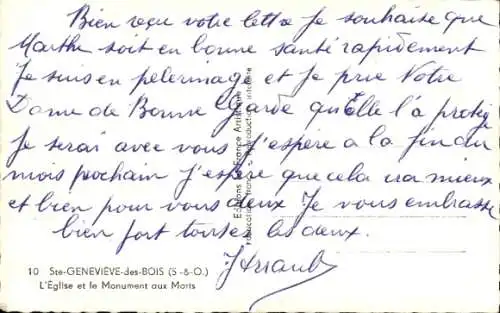 Bien reçu votre lettre Je souhaite que
Marthe soit en bonne santé rapidement
Je suis en pelerinage et je prie Notre
Dame de Bonne Garde qu'Elle l'a protég
Je serai avec vous j'espère a la fin du
mois prochain j'espère que cela ira mieux
et bien pour vous deux. Je vous embrasse
bien fort toutes les deux.
10 Ste-GENEVIÈVE-des-BOIS (S.-&-O.)
L'Église et le Monument aux Morts